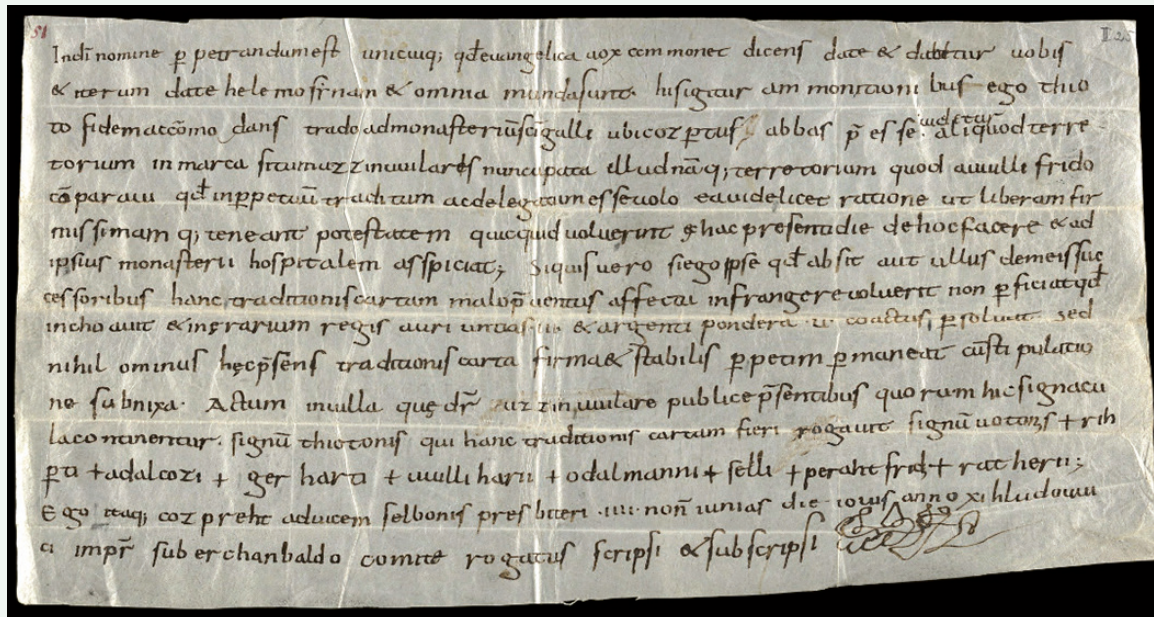 51 II 25
In dī nomine p̱ petrandum est unicuiq; qđ evangelica vox com monet dicens date & dabitur vobis
& iterum date helemosinam & omnia munda sunt. his igitur am monitioni bus ego thio
to fidem accōmo dans trado ad monasteriū sc̄i galli ubi cozpertus abbas p̄ es se videtur aliquod terre
torium in marca situm uzzinuuilares nuncupata illud nāq; terretorium quod a uuilli frido
cōparavi qđ in p̱petuū traditum ac delegatum esse volo ea videlicet ratione ut liberam fir
missimam q; teneant potestatem quicquid voluerint ex hac presenti die de hoc facere & ad
ipsius monasterii hospitalem asspiciat; Si quis vero si ego ipse qđ absit aut ullus de meis suc
cessoribus hanc traditionis cartam malo p̄ventus affectu infrangere voluerit non p̱ficiat qđ
inchoavit & in erarium regis auri uncias & argenti pondera v coactus p̱solvat. sed
nihil ominus hęc p̄sens traditionis carta firma & stabilis p̱petim p̱maneat cū stipulatio
ne subnixa. Actum in villa quę dr̄ uzzinuuilare publice p̄sentibus quorum hic signacu
la continentur. signū thiotonis qui hanc traditionis cartam fieri rogavit signū + rih
p̱ti + adalcozi + ger harti + uuilli harii + odalmanni + selli + peraht frid + rat herii;
Ego itaq; cozpreht ad vicem selbonis pres biteri .iiii. non̄ iunias die iovis anno xi hludovvi
ci impr̄ sub erchanbaldo comite rogatus scripsi & subscripsi